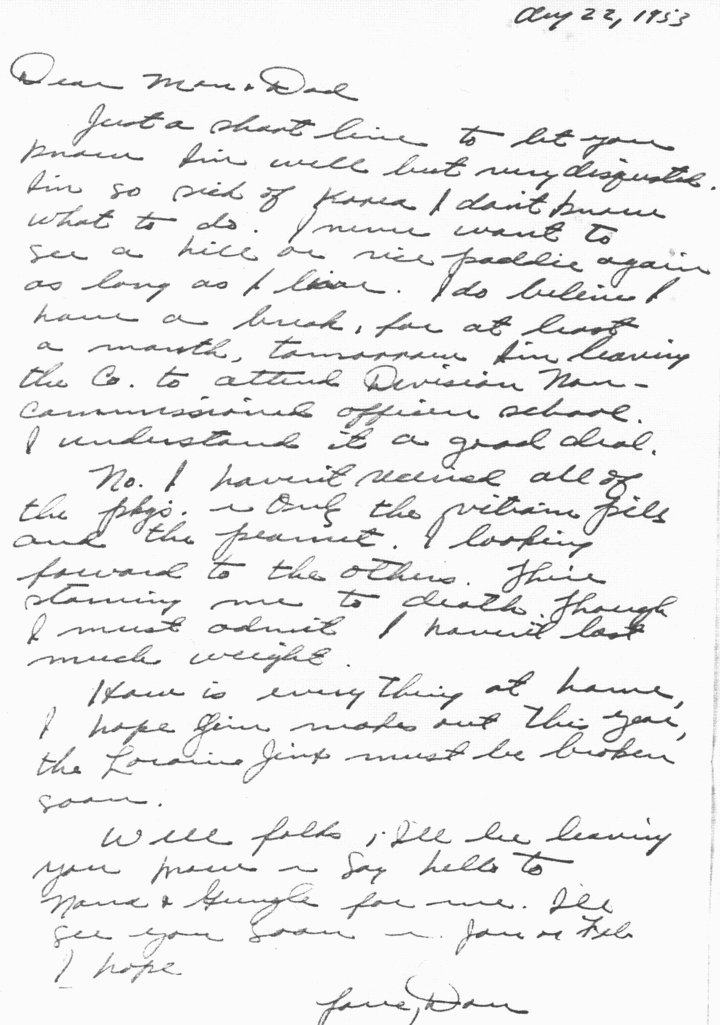 Aug 22, 1953
Dear Mom & Dad
Just a short line to let you
know I'm well but very disgusted.
I'm so sick of Korea I don't know
what to do. I never want to
see a hill or rice paddie again
as long as I live. I do believe I
have a break, for at least
a month, tomorrow I'm leaving
the Co. to attend Division Non-
commissioned officer school.
I understand it a good deal.
No. I haven't received all of
the pkgs. — Only the vitiam pills
and the peanut. I looking
forward to the others. Their
starving me to death. Though
I must admit I haven't lost
much weight.
How is everything at home,
I hope Jim makes out this year,
the Lorain Jinx must be broken
soon.
Well folks, I'll be leaving
you now — Say hello to
Nana & for me. I'll
see you soon — Jan or Feb
I hope
Love, Don